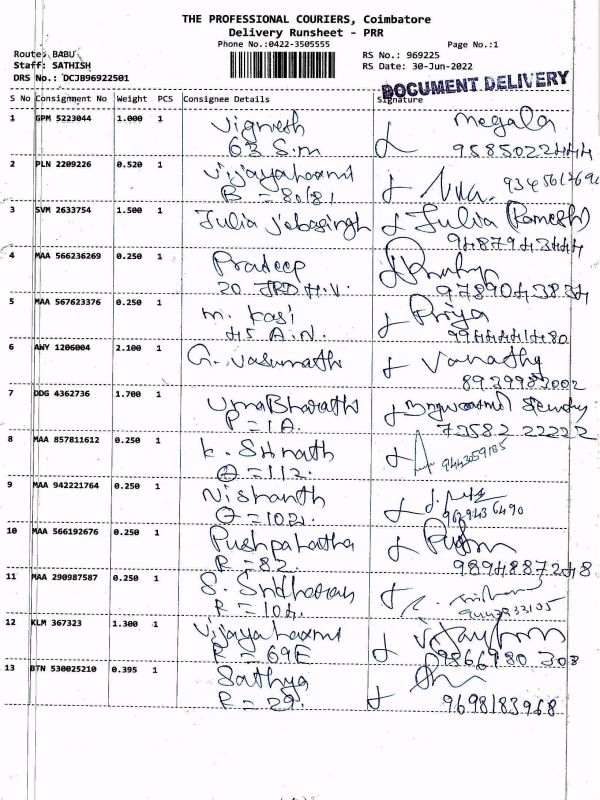 THE PROFESSIONAL COURIERS, Coimbatore
Delivery Runsheet - PRR
Phone No.:0422-3505555
Page No.:1
Route: BABU
RS No.: 969225
Staff: SATHISH
RS Date: 30-Jun-2022
DRS No.: DCJB96922501
DOCUMENT DELIVERY
S No Consignment No Weight PCS Consignee Details Signature
1 GPM 5223044 1.000 1 Vignesh Megala
63 S.M 9585022444
2 PLN 2209226 0.520 1 Vijayalaxmi
B = 80/81
3 SVM 2633754 1.500 1 Julia Jebasingh Julia (Ramesh)
9487943444
4 MAA 566236269 0.250 1 Pradeep
20. JRD H.V. 9789043834
5 MAA 567623376 0.250 1 M. Kasi Priya
45 A.N. 9944444480
6 AWY 1206004 2.100 1 G. Vasumathi Vanathy
8939983002
7 DDG 4362736 1.700 1 Uma Bharathi
P = 1A. 73582 22222
8 MAA 857811612 0.250 1 K. Srinath
O = 112.
9 MAA 942221764 0.250 1 Nishanth
O = 102. 9629436490
10 MAA 566192676 0.250 1 Pushpalatha
R = 82. 9894887248
11 MAA 290987587 0.250 1 S. Sridharan
R = 104. 9443333105
12 KLM 367323 1.300 1 Vijayalaxmi
R = 69E 9866980 308
13 BTN 530025210 0.395 1 Sathya
R = 29. 9698183968